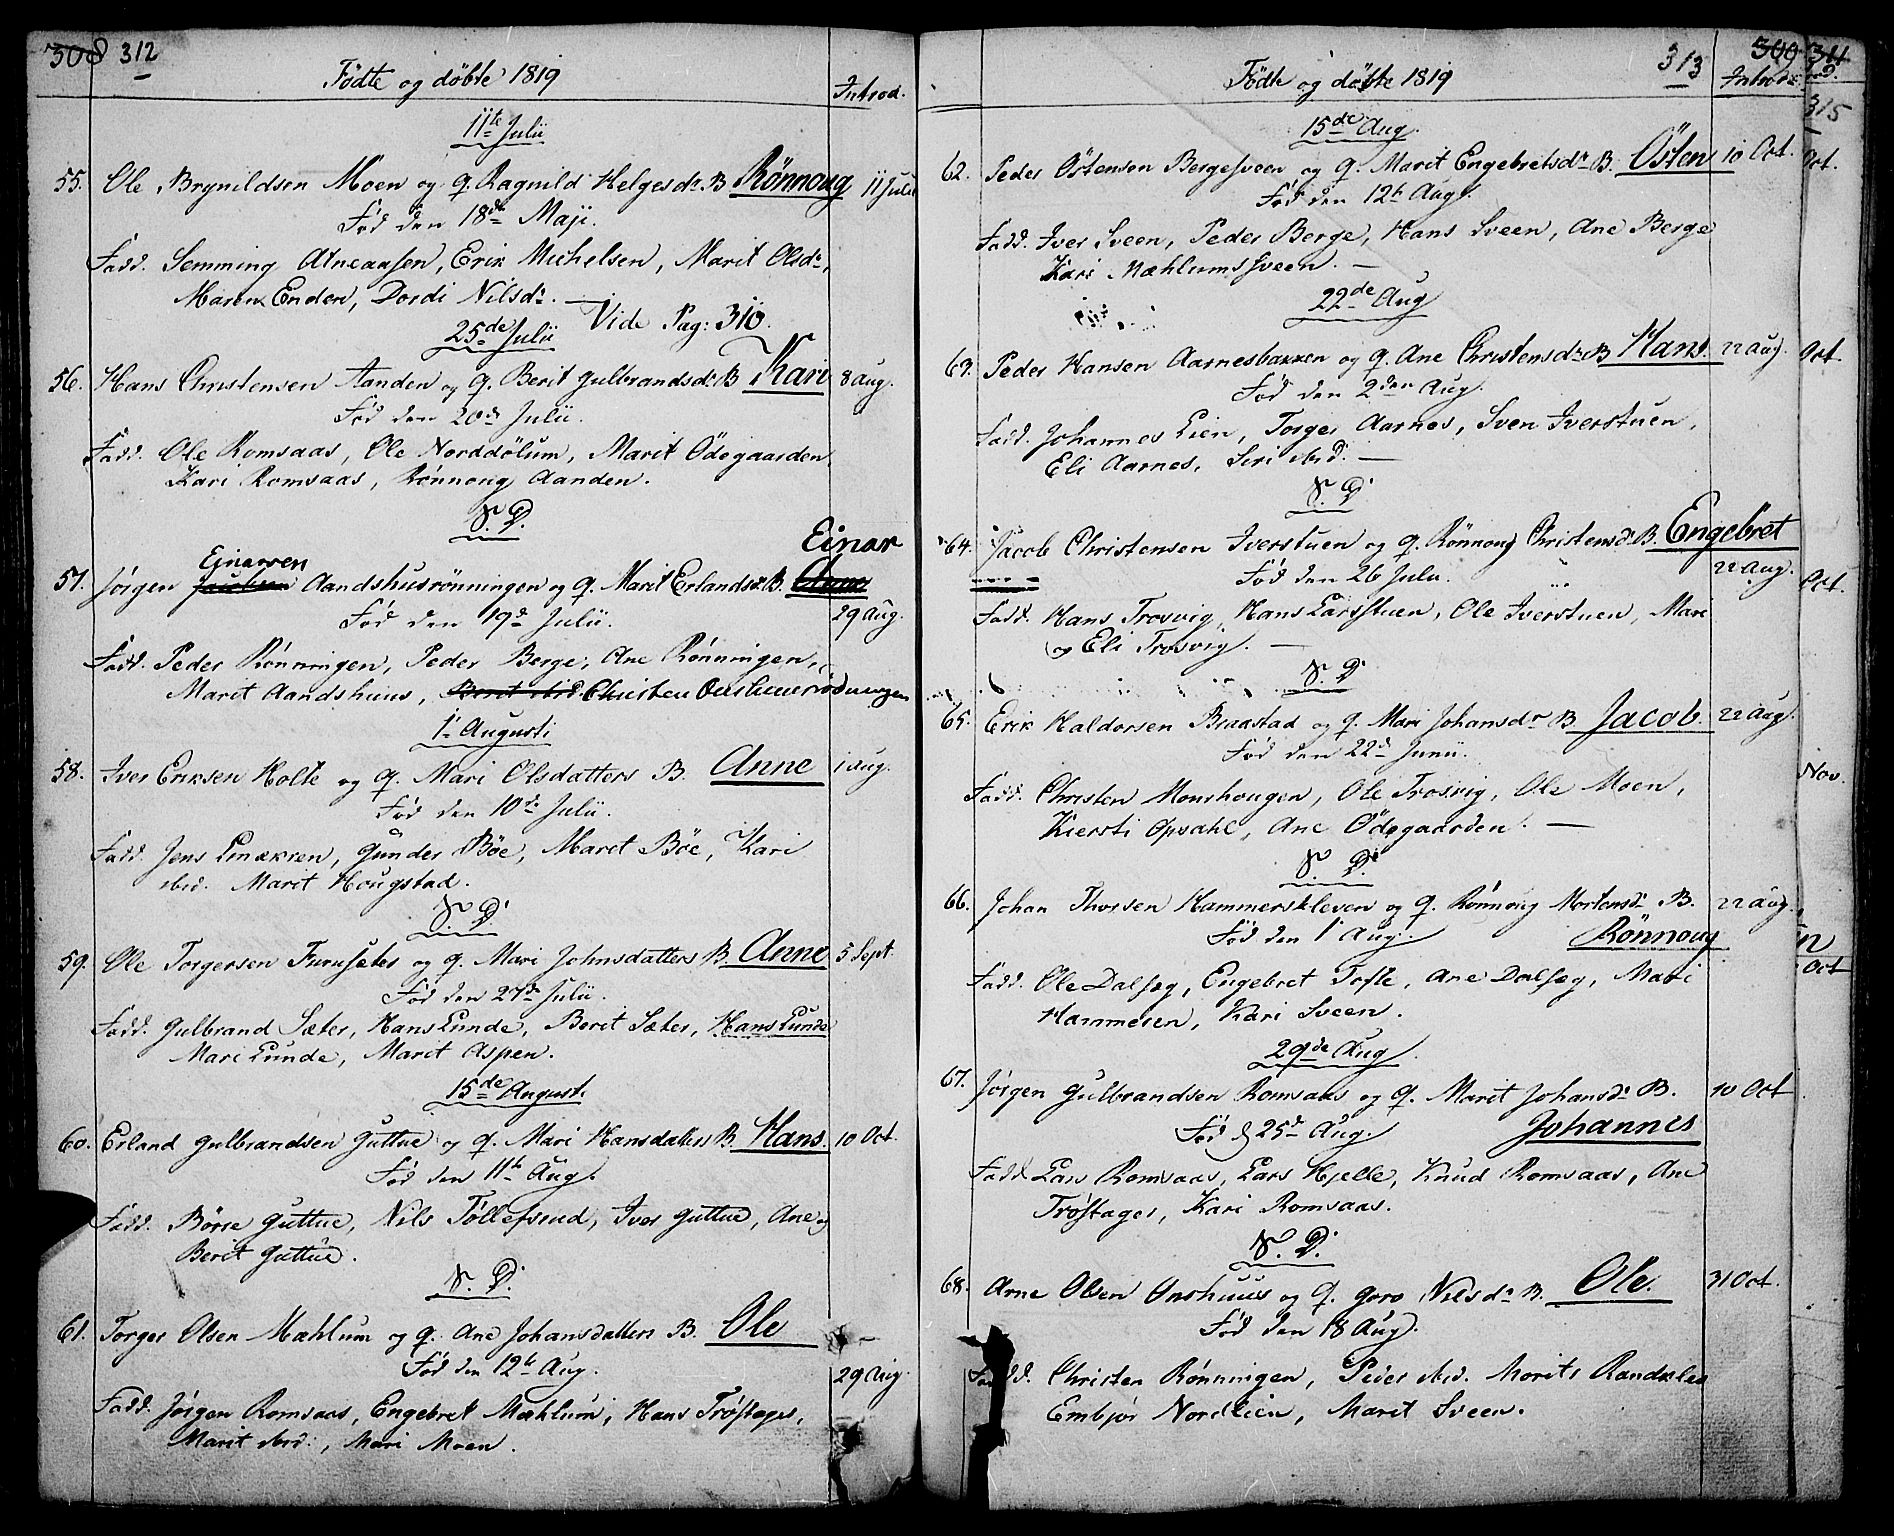 308 312
Födte og döbte 1819
Introd.
11te Julii
55. Ole Brynildsen Moen og q. Ragnild Helgesdr. B Rönnoug 11 Julii
Föd den 18de Maji.
Fadd. Semming Atneaasen, Erik Michelsen, Marit Olsdr.,
Maren Enden, Dordi Nilsdr. —
Vide Pag: 310.
25de Julii
56. Hans Christensen Aanden og q. Berit Gulbrandsdr. B Kari 8 aug.
Föd den 20de Julii.
Fadd. Ole Romsaas, Ole Norddölum, Marit Ödegaarden,
Kari Romsaas, Rönnoug Aanden.
S. D.
Einarsen Einar
57. Jörgen Jacobsen Aandshusrönningen og q. Marit Erlandsdr. B. Anne
Föd den 19de Julii. 29 Aug.
Fadd. Peder Rönningen, Peder Berge, Ane Rönningen,
Marit Aandshuus, Berit ibid. Christen Onshuusrödningen
1te Augusti
58. Iver Eriksen Holte og q. Mari Olsdatters B. Anne 1 aug.
Föd den 10de Julii.
Fadd. Jens Linækren, Gunder Böe, Maret Böe, Kari
ibid. Marit Hougstad.
S. D.
59. Ole Torgersen Furuseter og q. Mari Johnsdatters B. Anne 5 Sept.
Föd den 27de Julii.
Fadd. Gulbrand Sæter, Hans Lunde, Berit Sæter, Hans Lunde
Mari Lunde, Marit Aspen.
15de August.
60. Erland Gulbrandsen Guttue og q. Mari Hansdatters B. Hans. 10 Oct.
Föd den 11te Aug.
Fadd. Börre Guttue, Nils Töllefsrud, Iver Guttue, Ane og
Berit Guttue.
S. D.
61. Torger Olsen Mæhlum og q. Ane Johansdatters B. Ole
Föd den 12te Aug. 29 Aug.
Fadd. Jörgen Romsaas, Engebret Mæhlum, Hans Tröstager,
Marit ibid., Mari Moen.
313 309 311
Födte og döbte 1819
Introd.
315
15de Aug.
62. Peder Östensen Bergesveen og q. Marit Engebretsdr. B. Östen 10 Oct. Oct.
Föd den 12te Aug.
Fadd. Iver Sveen, Peder Berge, Hans Sveen, Ane Berge
Kari Mæhlumssveen. —
22de Aug
63. Peder Hansen Aarnesbakken og q. Ane Christensdr. B Hans. 22 Aug. Oct.
Föd den 2den Aug.
Fadd. Johannes Lien, Torger Aarnes, Sven Iverstuen,
Eli Aarnes, Siri ibid. —
S. D.
64. Jacob Christensen Iverstuen og q. Rönnoug Christensdr. B. Engebret
Föd den 26 Julii. 22 Aug.
Oct.
Fadd. Hans Trosvig, Hans Larsstuen, Ole Iverstuen, Mari
og Eli Trosvig. —
S. D.
65. Erik Haldorsen Braastad og q. Mari Johansdr. B. Jacob. 22 Aug.
Föd den 22de Junii.
Nov.
Fadd. Christen Monshougen, Ole Trosvig, Ole Moen,
Kiersti Opsahl, Ane Ödegaarden. —
S. D.
66. Johan Thorsen Hammerskleven og q. Rönnoug Mortensdr. B. 22 Aug.
Föd den 1te Aug. Rönnoug
Oct
Fadd. Ole Dalseg, Engebret Tofte, Ane Dalseg, Mari
Hammeren, Kari Sveen.
29de Aug.
67. Jörgen Gulbrandsen Romsaas og q. Marit Johansdr. B. 10 Oct
Föd d 25de Aug. Johannes
Fadd. Lars Romsaas, Lars Hjelle, Knud Romsaas, Ane
Tröstager, Kari Romsaas.
S. D.
68. Arne Olsen Onshuus og q. Goro Nilsdr. B. Ole. 31 Oct.
Föd den 18 Aug.
Fadd. Christen Rönningen, Peder ibid. Morits Randklev
Embjör Nordlien, Marit Sveen.